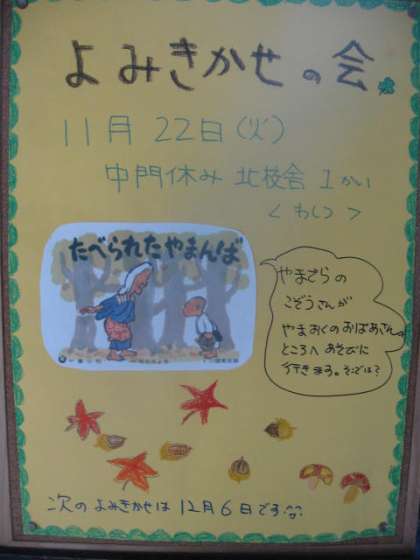 よみきかせの会
11月 22日(火)
中門休み 北校舎 1かい
<わしつ>
たべられたやまんば
やまでらの
こぞうさんが
やまおくのおばあさんの
ところへ あそびに
行きます。そこでは?
次の よみきかせは 12月6日です